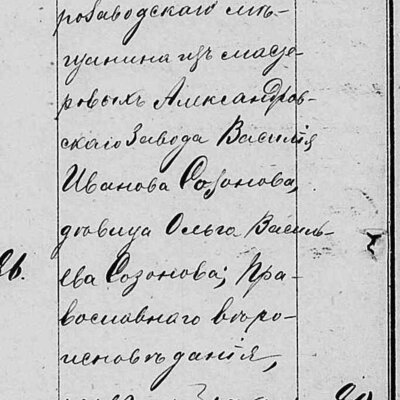 розаводскаго мѣ-
щанина изъ масте-
ровыхъ Александров-
скаго завода Василія
Иванова Созонова,
дѣвица Ольга Василь-
26.
ева Созонова; Пра-
вославнаго вѣро-
исповѣданія,
20